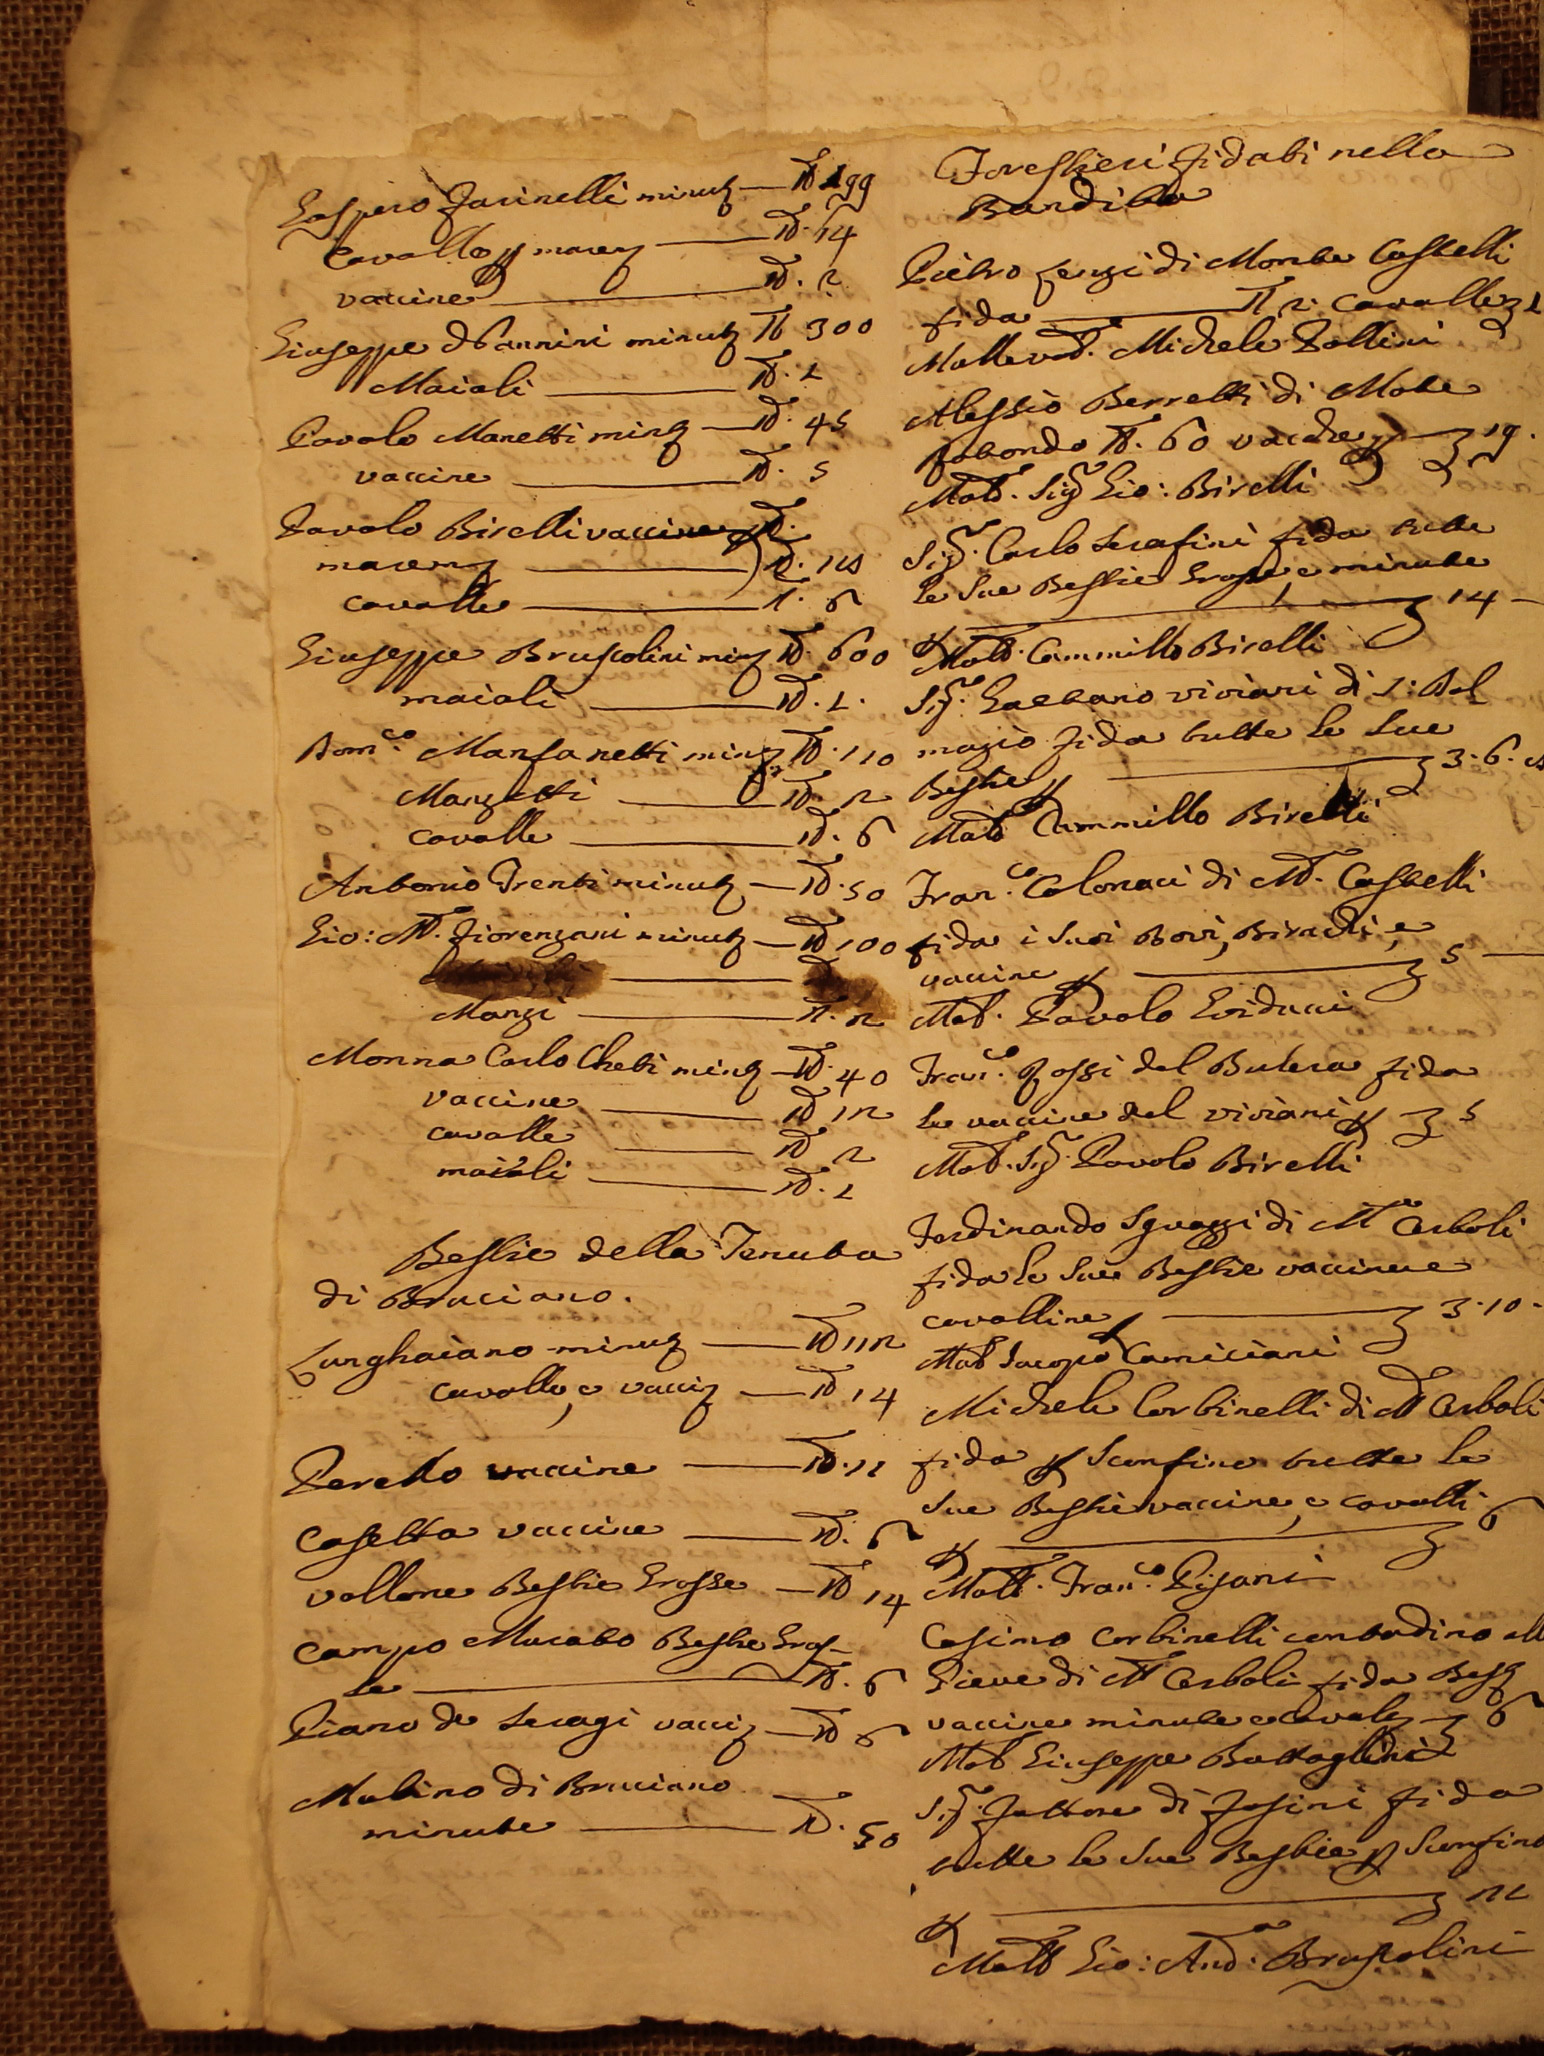 Gaspero Farinelli minut. — N. 199
Cavalle, e mare — N. 14
vaccine — N. 2
Giuseppe Vannini minut. N. 300
Maiali — N. 1
Pavolo Manetti min. — N. 45
vaccine — N. 5
Pavolo Birelli vaccine
marem. — N.
cavalle — N. 6
Giuseppe Bruscolini min. N. 600
maiali — N. 1.
Dom.co Manfanetti min. N. 110
Manzetti — N. 2
cavalle — N. 6
Antonio Trenti minut. — N. 50
Gio: M. Fiorenzani minut. — N. 100
Manzi — N. 2
Monna Carlo Cheti min. — N. 40
vaccine — N. 12
cavalle — N. 2
maiali — N. 1
Bestie della Tenuta
di Bruciano.
Lunghaiano minut. — N. 112
cavalle, e vaccin. — N. 14
Peretto vaccine — N. 11
Casetta vaccine — N. 6
vallone Bestie Grosse — N. 14
campo Mucato Bestie Gros-
se — N. 6
Piano de Seragi vaccin. — N. 6
Mulino di Bruciano
minute — N. 50
Forestieri fidati nella
Bandita
Pietro Renzi di Monte Castelli
fida — N. 2: cavalle 1
Mallevad. Michele Tollini
Alessio Berretti di Monte
rotondo N. 60 vacche — 19.
Mall. Sig. Gio: Birelli
Sig. Carlo Serafini fida tutte
le sue Bestie Grosse, e minute
— 14 —
Mall. Cammillo Birelli
Sig. Gaetano viviani di S: Dal
mazio fida tutte le sue
Bestie — 3. 6.
Mall. Cammillo Birelli
Fran.co Colonaci di M. Castelli
fida i suoi Bovi, Biradi, e
vaccine — 5 —
Mal. Pavolo Guiducci
Fran.co Rossi del Butera fida
le vaccine del viviani — 5
Mal. Sig. Pavolo Birelli
Ferdinando Sguazzi di M.e Cerboli
fida le sue Bestie vaccine e
cavalline — 3. 10.
Mal. Jacopo Camiciani
Michele Corbinelli di M. Cerboli
fida p Sconfino tutte le
sue Bestie vaccine, e cavalli
— 6
Mall. Fran.co Pisani
Cosimo Corbinelli contadino
Pieve di M. Cerboli fida Best.
vaccine minute e cavale — 6
Mal. Giuseppe Battaglini
Sig. Fattore di Fosini fida
tutte le sue Bestie p Sconfino
— 12
Mall. Gio: And.a Bruscolini